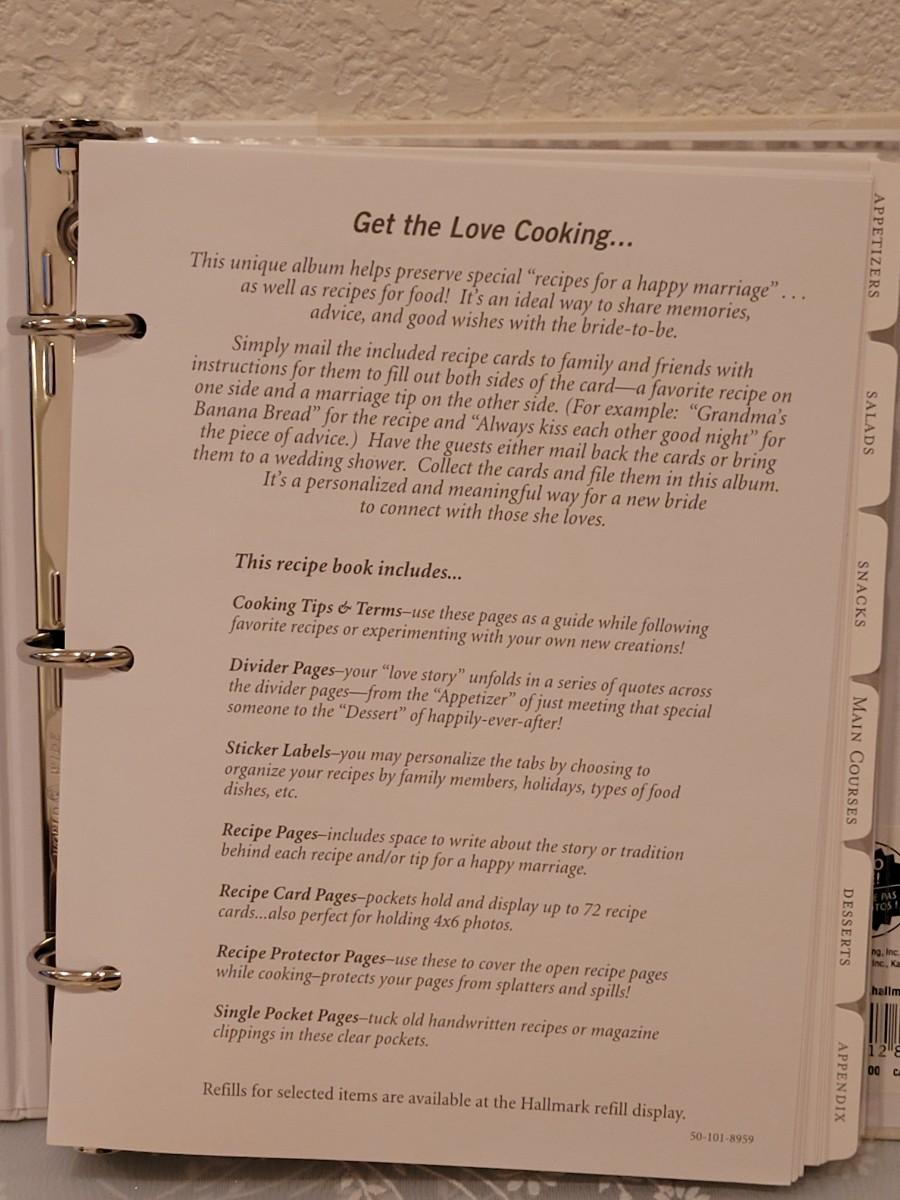 Get the Love Cooking...
This unique album helps preserve special “recipes for a happy marriage” . . .
as well as recipes for food! It’s an ideal way to share memories,
advice, and good wishes with the bride-to-be.
Simply mail the included recipe cards to family and friends with
instructions for them to fill out both sides of the card—a favorite recipe on
one side and a marriage tip on the other side. (For example: “Grandma’s
Banana Bread” for the recipe and “Always kiss each other good night” for
the piece of advice.) Have the guests either mail back the cards or bring
them to a wedding shower. Collect the cards and file them in this album.
It’s a personalized and meaningful way for a new bride
to connect with those she loves.
This recipe book includes...
Cooking Tips & Terms–use these pages as a guide while following
favorite recipes or experimenting with your own new creations!
Divider Pages–your “love story” unfolds in a series of quotes across
the divider pages—from the “Appetizer” of just meeting that special
someone to the “Dessert” of happily-ever-after!
Sticker Labels–you may personalize the tabs by choosing to
organize your recipes by family members, holidays, types of food
dishes, etc.
Recipe Pages–includes space to write about the story or tradition
behind each recipe and/or tip for a happy marriage.
Recipe Card Pages–pockets hold and display up to 72 recipe
cards...also perfect for holding 4x6 photos.
Recipe Protector Pages–use these to cover the open recipe pages
while cooking–protects your pages from splatters and spills!
Single Pocket Pages–tuck old handwritten recipes or magazine
clippings in these clear pockets.
Refills for selected items are available at the Hallmark refill display.
50-101-8959
APPETIZERS
SALADS
SNACKS
MAIN COURSES
DESSERTS
APPENDIX
PAS
ng, Inc.
Inc., Ka
hallm
12
00